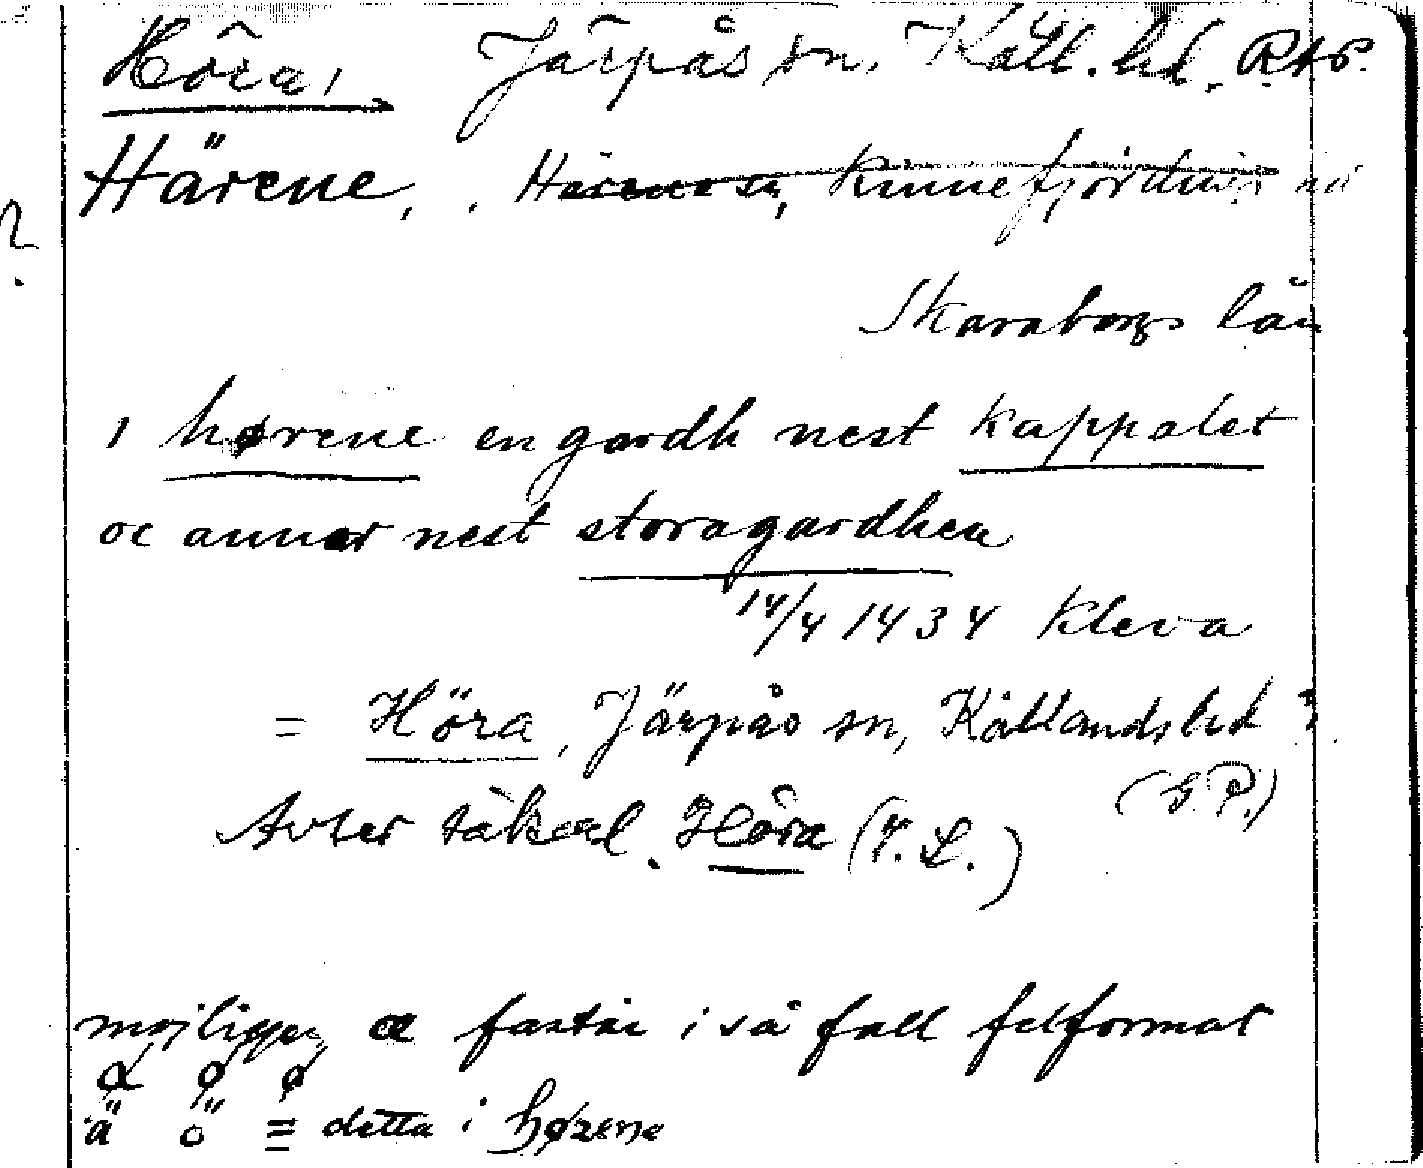 Höra, Järpås sn. Kåll. hd. RAP.
Härene, Härene sn, Kinnefjärdings hd
?
Skaraborgs län
i hørene en gardh nest kappalet
oc annar nest storagardhen
14/4 1434 Kleva
= Höra, Järpås sn, Kållandshd ?
(G.P.)
Avser säkerl. Höra (I. L.)
möjligen æ fastän i så fall felformat
ä ö = detta i hørene